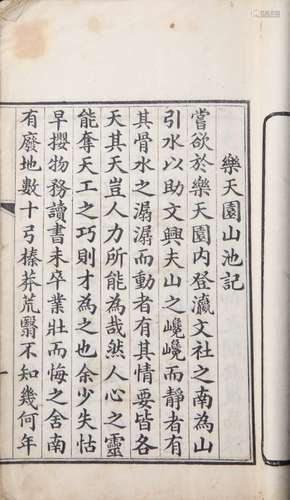 樂天園山池記
嘗欲於樂天園內登瀛文社之南為山
引水以助文興夫山之巉巉而靜者有
其骨水之潺潺而動者有其情要皆各
天其天豈人力所能為哉然人心之靈
能奪天工之巧則才為之也余少失怙
早攖物務讀書未卒業壯而悔之舍南
有廢地數十弓榛莽荒翳不知幾何年